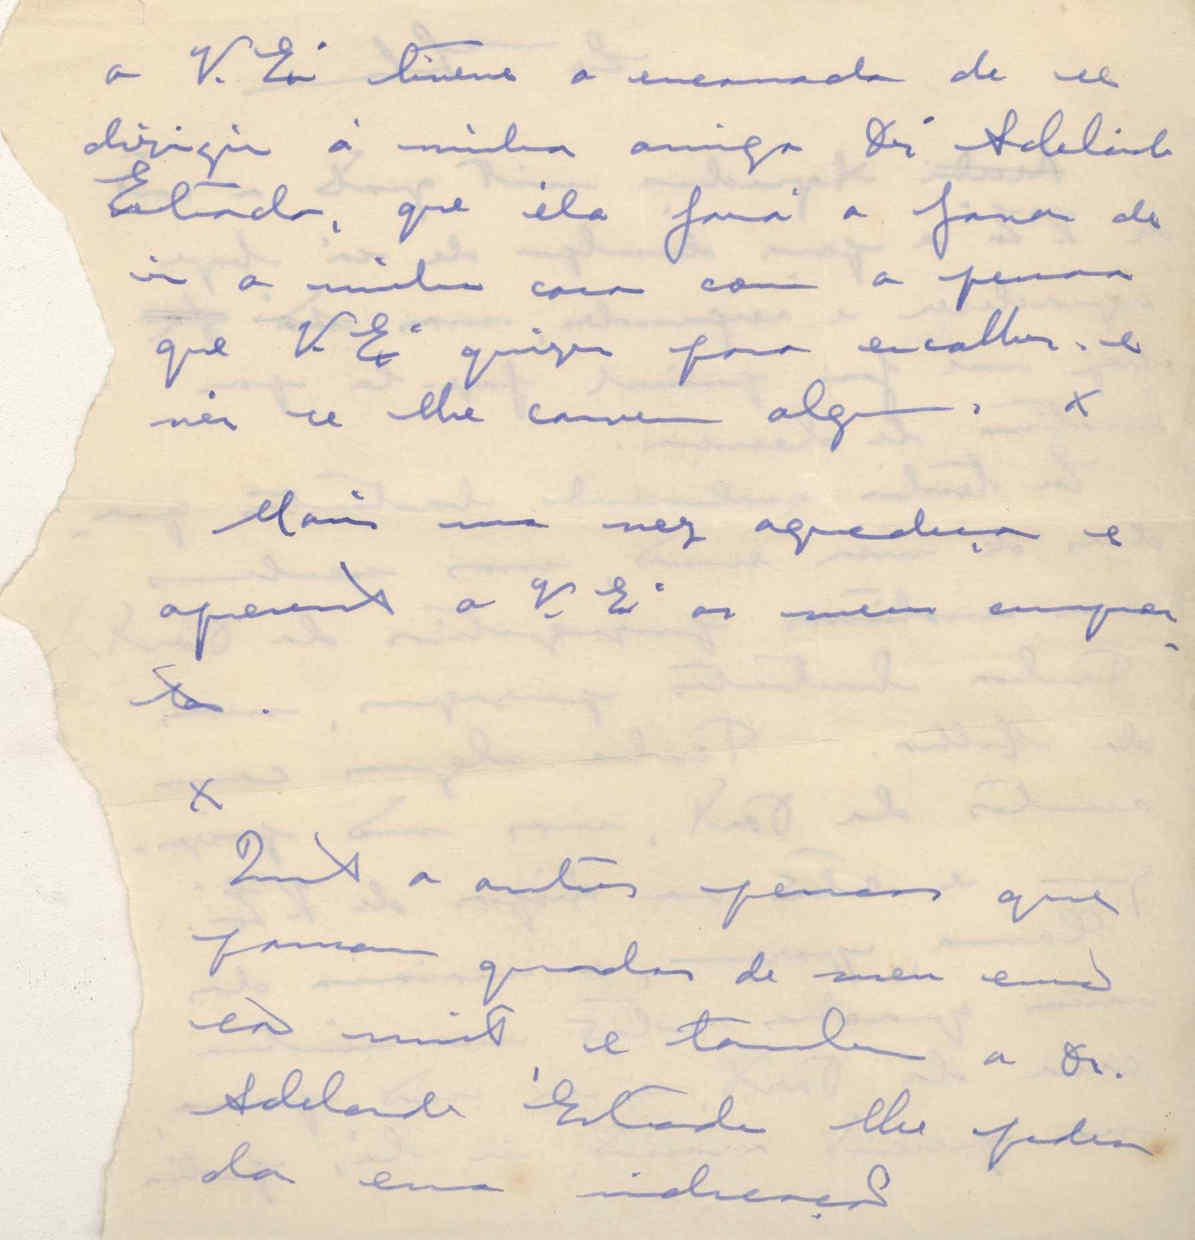 a V. Exª tivesse a encomenda de se
dirigir á minha amiga Drª Adelaide
Estrada, que éla fará o favor de
ir a minha casa com a pessoa
que V. Exª quizer para escolher, e
vêr se lhe convem algum. x
Mais uma vez agradeço e
apresento a V. Exª os meus cumprimen
tos.
x
Quanto a outras pessoas que
possam quadros de meu irmão
são muitos, e tambem a Dr.
Adelaide Estrada lhe poderá
dar essa indicação